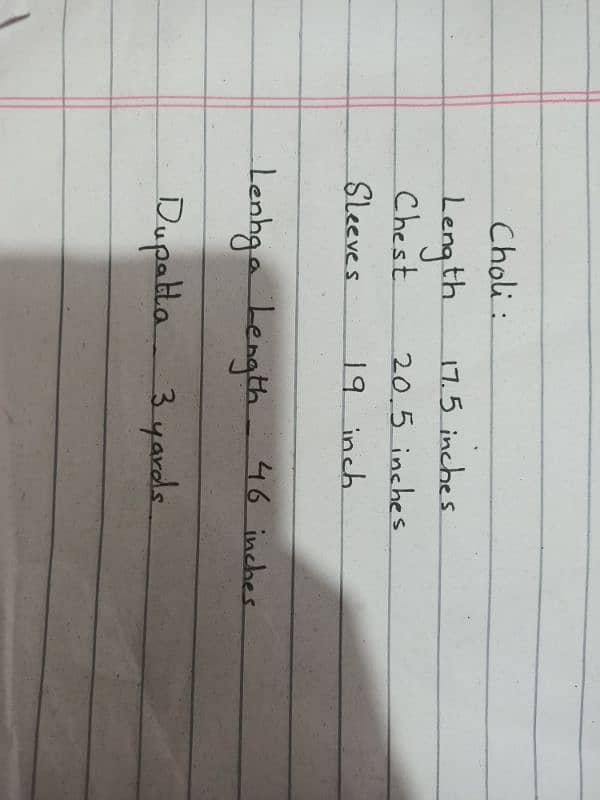 Choli:
Length 17.5 inches
Chest 20.5 inches
Sleeves 19 inch
Lenhga Length - 46 inches
Dupatta - 3 yards